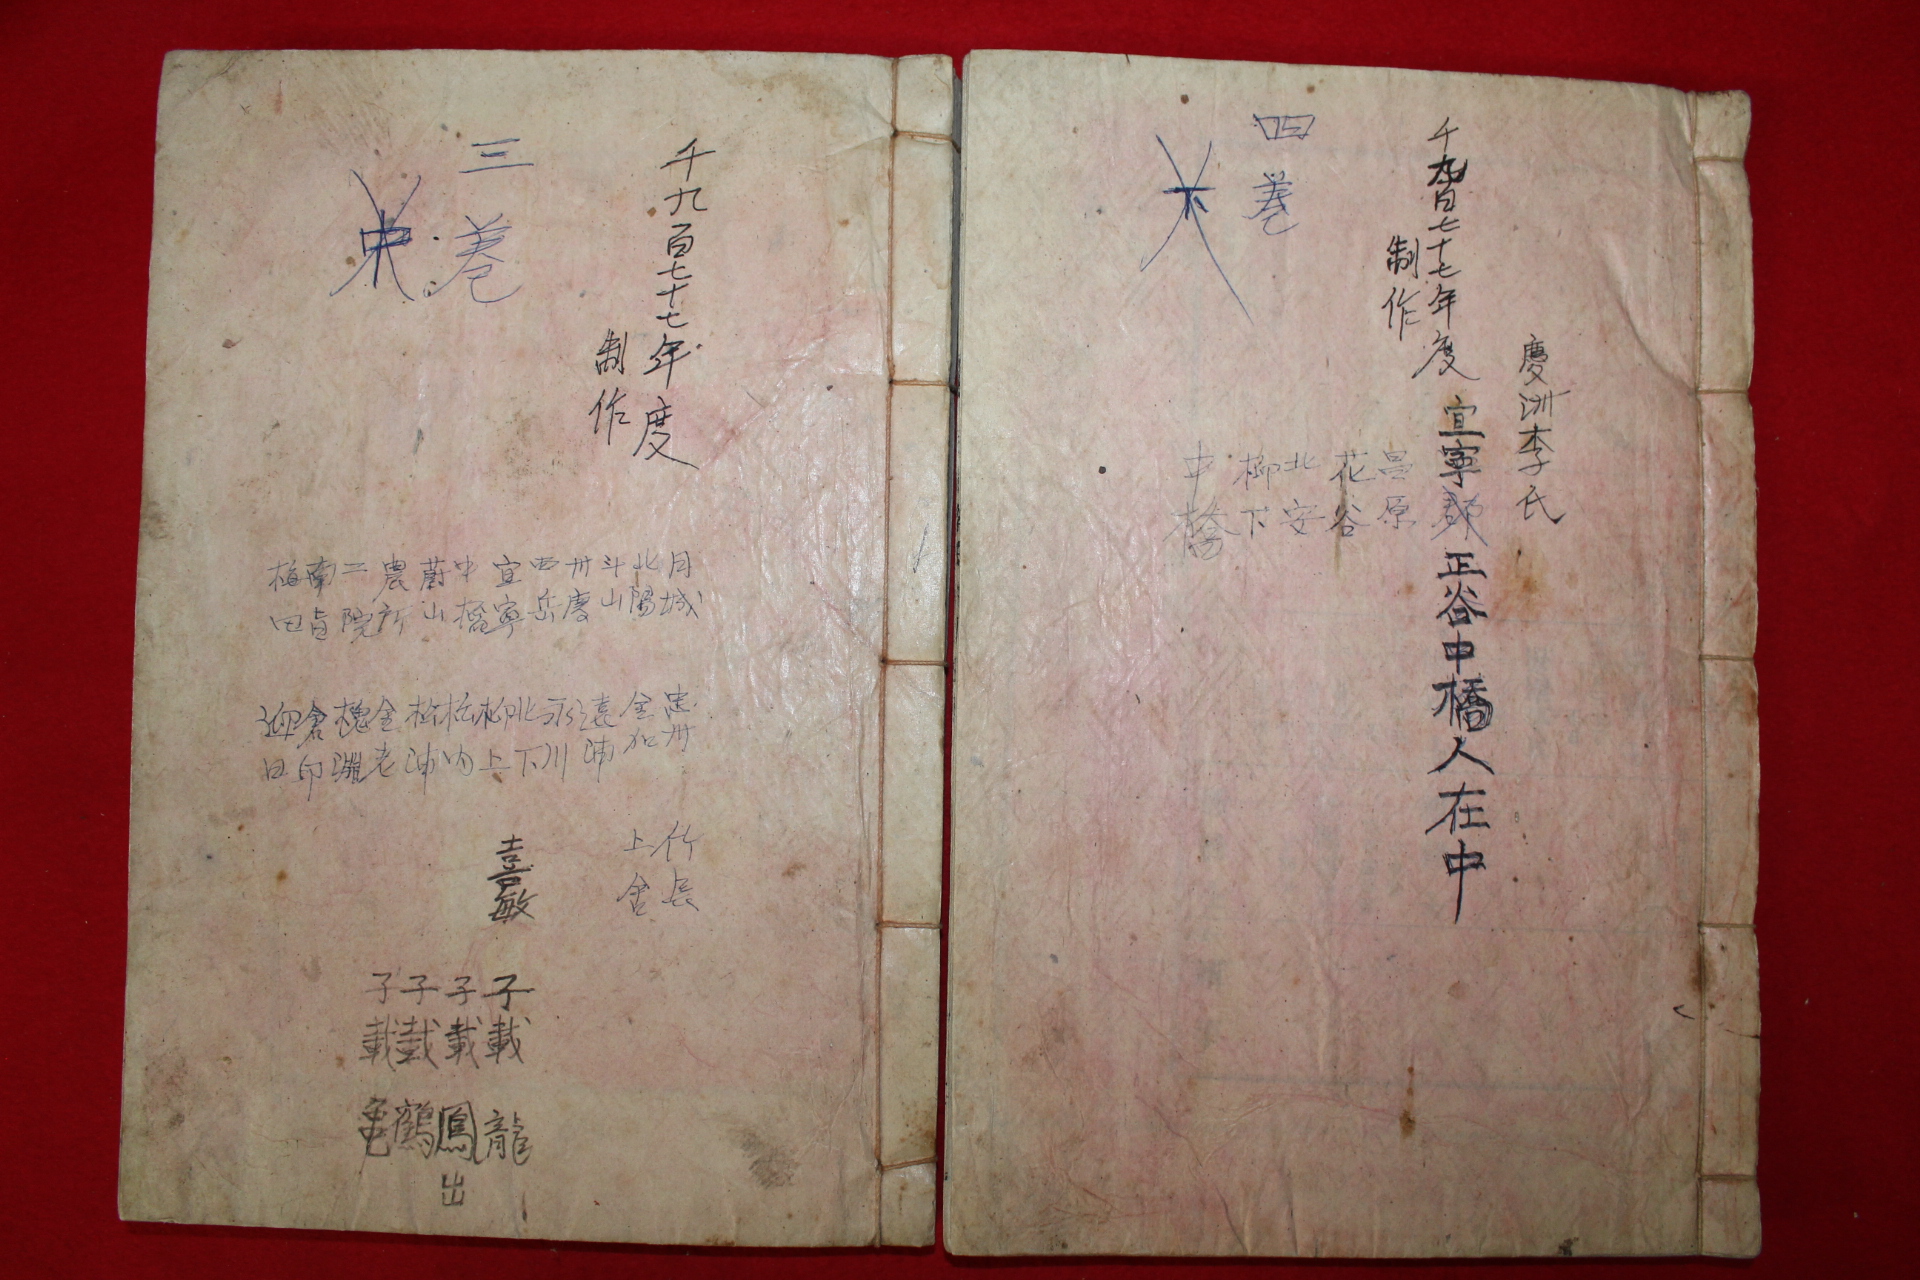 千九百七十七年度
制作
三巻
月城
北陽
斗山
卅慶
西岳
宜寧
中橋
蔚山
農所
二院
南旨
梅田
忠州
金加
遠浦
永川
北下
柳上
松内
柳浦
金老
槐淵
倉印
迎日
竹長
上舍
喜敏
子載龍
子載鳳出
子載鶴
子載龜
慶洲李氏
千九百七十七年度
制作
宜寧郡正谷中橋人在中
四巻
昌原
花谷
北安
柳下
中橋